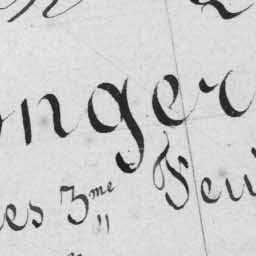 nger
es 3me Feui